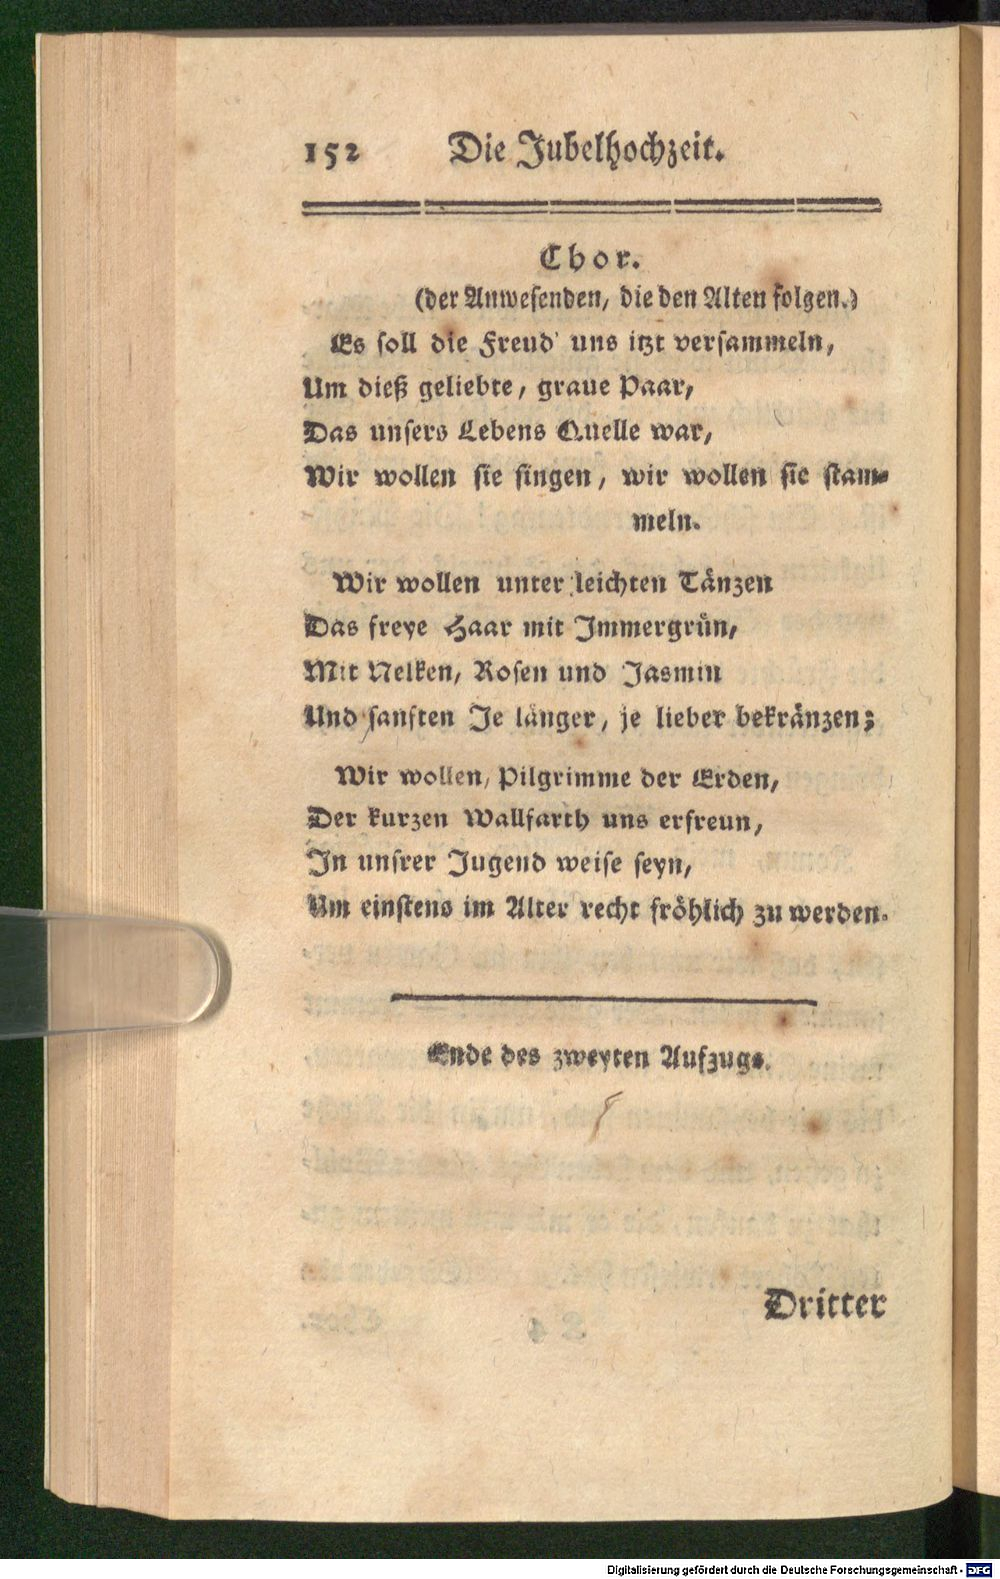 152 Die Jubelhochzeit.
Chor.
(der Anwesenden, die den Alten folgen.)
Es soll die Freud' uns itzt versammeln,
Um dieß geliebte, graue Paar,
Das unsers Lebens Quelle war,
Wir wollen sie singen, wir wollen sie stam-
meln.
Wir wollen unter leichten Tänzen
Das freye Haar mit Immergrün,
Mit Nelken, Rosen und Jasmin
Und sanften Je länger, je lieber bekränzen;
Wir wollen, Pilgrimme der Erden,
Der kurzen Wallfarth uns erfreun,
In unsrer Jugend weise seyn,
Um einstens im Alter recht fröhlich zu werden.
Ende des zweyten Aufzugs.
Dritter
Digitalisierung gefördert durch die Deutsche Forschungsgemeinschaft - DFG